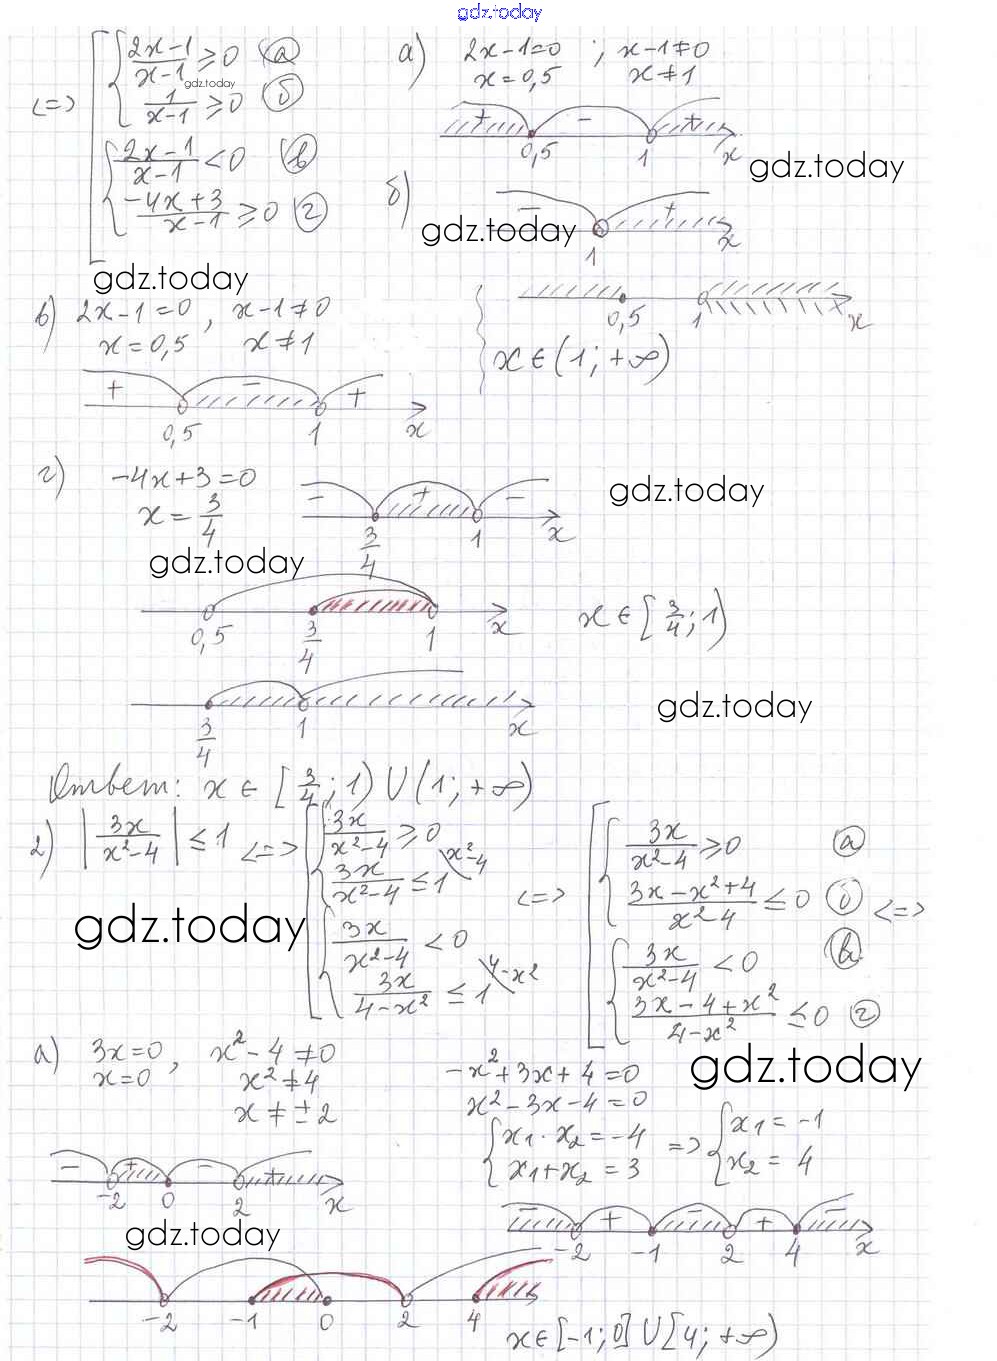 gdz.today
<=> [ { (2x-1)/(x-1) ≥ 0 (а)
gdz.today
1/(x-1) ≥ 0 (б)
{ (2x-1)/(x-1) < 0 (в)
(-4x+3)/(x-1) ≥ 0 (г)
gdz.today
а) 2x-1=0 ; x-1≠0
x=0,5 x≠1
+ - +
0,5 1 x
gdz.today
б) - +
gdz.today
1 x
0,5 1 x
x∈(1;+∞)
в) 2x-1=0, x-1≠0
x=0,5 x≠1
+ - +
0,5 1 x
г) -4x+3=0
x=3/4
- + -
3/4 1 x
gdz.today
gdz.today
0,5 3/4 1 x
x∈[3/4;1)
3/4 1 x
gdz.today
Ответ: x∈[3/4;1)∪(1;+∞)
2) |3x/(x²-4)| ≤ 1 <=> [ { 3x/(x²-4) ≥ 0
3x/(x²-4) ≤ 1 \x²-4
{ 3x/(x²-4) < 0
3x/(4-x²) ≤ 1 \4-x²
<=> [ { 3x/(x²-4) ≥ 0 (а)
(3x-x²+4)/(x²-4) ≤ 0 (б) <=>
{ 3x/(x²-4) < 0 (в)
(3x-4+x²)/(4-x²) ≤ 0 (г)
gdz.today
gdz.today
а) 3x=0, x²-4≠0
x=0 x²≠4
x≠±2
- + - +
-2 0 2 x
-x²+3x+4=0
x²-3x-4=0
{ x₁·x₂=-4 => { x₁=-1
x₁+x₂=3 x₂=4
- + - + -
-2 -1 2 4 x
gdz.today
-2 -1 0 2 4
x∈[-1;0]∪[4;+∞)